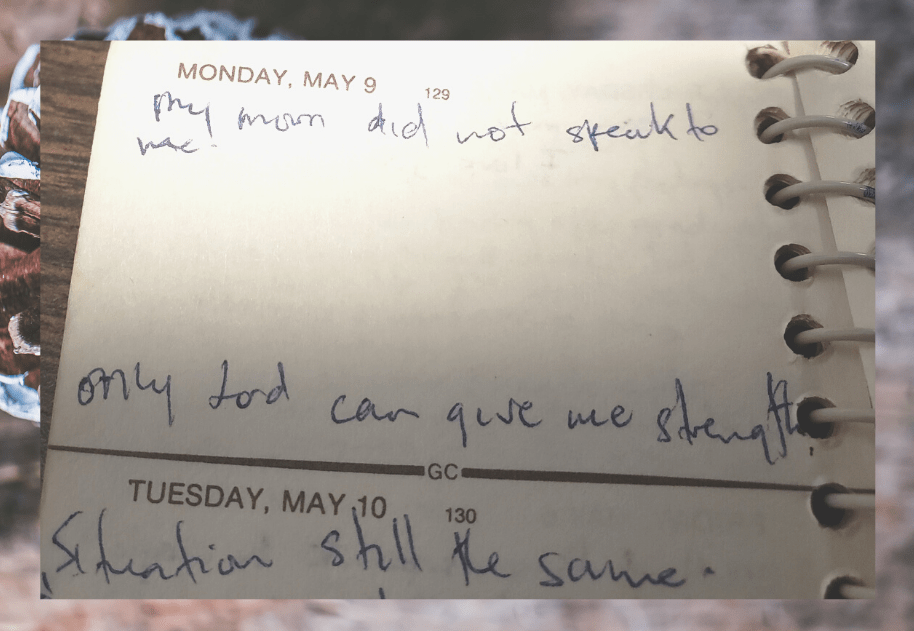 MONDAY, MAY 9 129
My mom did not speak to
me.
only Lord can give me strength.
GC
TUESDAY, MAY 10 130
Situation still the same.